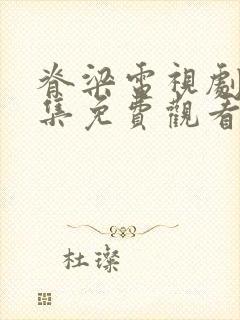 脊梁電視劇
集免費觀看
杜璨